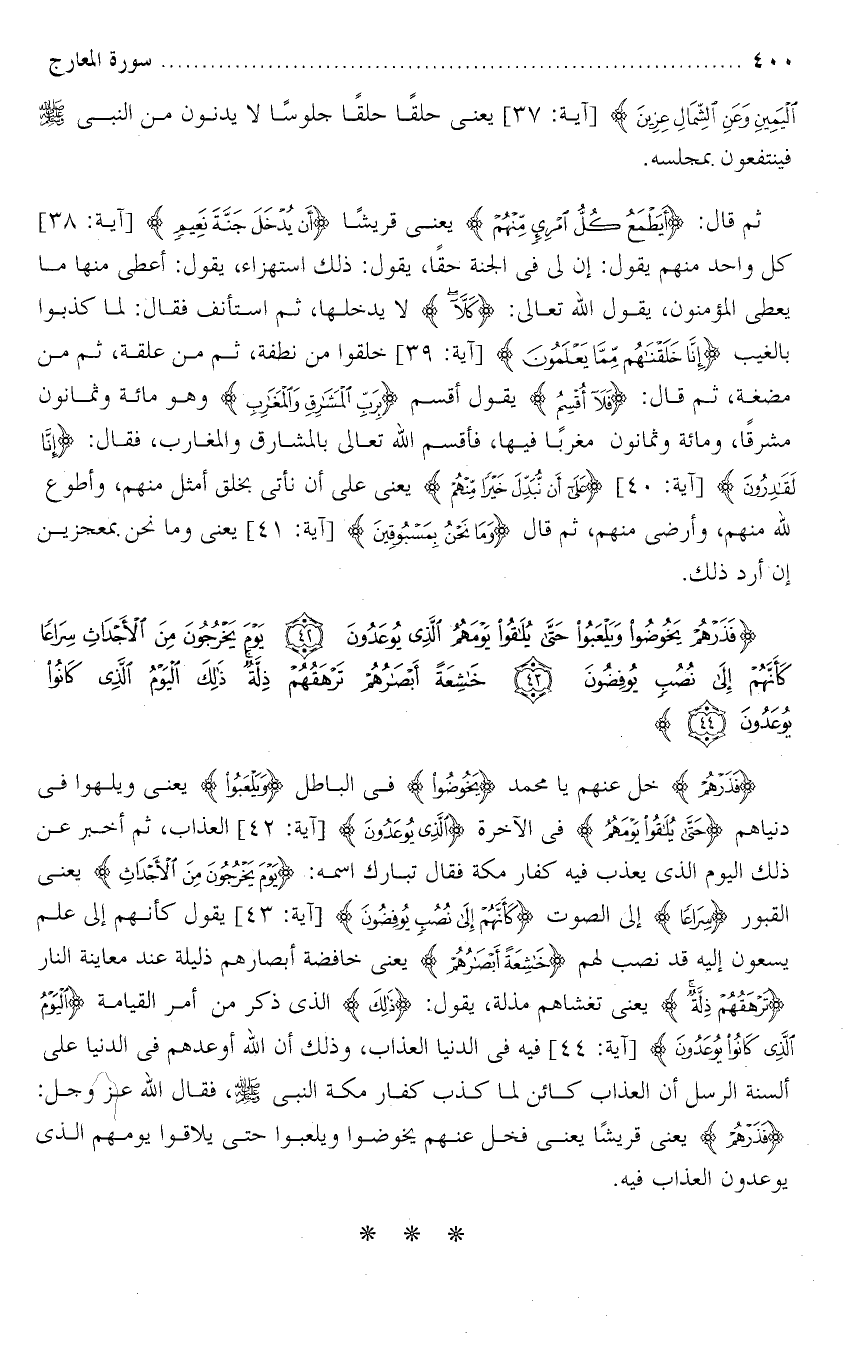 ٤٠٠ ........................................................................ سورة المعارج
ٱلْيَمِينِ وَعَنِ ٱلشِّمَالِ عِزِينَ ﴾ [آية: ٣٧] يعنى حلقًا حلقًا جلوسًا لا يدنون من النبى ﷺ
فينتفعون بمجلسه.
ثم قال: ﴿أَيَطْمَعُ كُلُّ ٱمْرِئٍ مِّنْهُمْ ﴾ يعنى قريشًا ﴿أَن يُدْخَلَ جَنَّةَ نَعِيمٍ ﴾ [آية: ٣٨]
كل واحد منهم يقول: إن لى فى الجنة حقًا، يقول: ذلك استهزاء، يقول: أعطى منها ما
يعطى المؤمنون، يقول الله تعالى: ﴿كَلَّآ ﴾ لا يدخلها، ثم استأنف فقال: لما كذبوا
بالغيب ﴿إِنَّا خَلَقْنَٰهُم مِّمَّا يَعْلَمُونَ ﴾ [آية: ٣٩] خلقوا من نطفة، ثم من علقة، ثم من
مضغة، ثم قال: ﴿فَلَآ أُقْسِمُ ﴾ يقول أقسم ﴿بِرَبِّ ٱلْمَشَٰرِقِ وَٱلْمَغَٰرِبِ ﴾ وهو مائة وثمانون
مشرقًا، ومائة وثمانون مغربًا فيها، فأقسم الله تعالى بالمشارق والمغارب، فقال: ﴿إِنَّا
لَقَٰدِرُونَ ﴾ [آية: ٤٠] ﴿عَلَىٰٓ أَن نُّبَدِّلَ خَيْرًا مِّنْهُمْ ﴾ يعنى على أن نأتى بخلق أمثل منهم، وأطوع
لله منهم، وأرضى منهم، ثم قال ﴿وَمَا نَحْنُ بِمَسْبُوقِينَ ﴾ [آية: ٤١] يعنى وما نحن بمعجزين
إن أرد ذلك.
﴿فَذَرْهُمْ يَخُوضُوا۟ وَيَلْعَبُوا۟ حَتَّىٰ يُلَٰقُوا۟ يَوْمَهُمُ ٱلَّذِى يُوعَدُونَ ٤٢ يَوْمَ يَخْرُجُونَ مِنَ ٱلْأَجْدَاثِ سِرَاعًا
كَأَنَّهُمْ إِلَىٰ نُصُبٍ يُوفِضُونَ ٤٣ خَٰشِعَةً أَبْصَٰرُهُمْ تَرْهَقُهُمْ ذِلَّةٌ ۚ ذَٰلِكَ ٱلْيَوْمُ ٱلَّذِى كَانُوا۟
يُوعَدُونَ ٤٤ ﴾
﴿فَذَرْهُمْ ﴾ خل عنهم يا محمد ﴿يَخُوضُوا۟ ﴾ فى الباطل ﴿وَيَلْعَبُوا۟ ﴾ يعنى ويلهوا فى
دنياهم ﴿حَتَّىٰ يُلَٰقُوا۟ يَوْمَهُمُ ﴾ فى الآخرة ﴿ٱلَّذِى يُوعَدُونَ ﴾ [آية: ٤٢] العذاب، ثم أخبر عن
ذلك اليوم الذى يعذب فيه كفار مكة فقال تبارك اسمه: ﴿يَوْمَ يَخْرُجُونَ مِنَ ٱلْأَجْدَاثِ ﴾ يعنى
القبور ﴿سِرَاعًا ﴾ إلى الصوت ﴿كَأَنَّهُمْ إِلَىٰ نُصُبٍ يُوفِضُونَ ﴾ [آية: ٤٣] يقول كأنهم إلى علم
يسعون إليه قد نصب لهم ﴿خَٰشِعَةً أَبْصَٰرُهُمْ ﴾ يعنى خافضة أبصارهم ذليلة عند معاينة النار
﴿تَرْهَقُهُمْ ذِلَّةٌ ۚ ﴾ يعنى تغشاهم مذلة، يقول: ﴿ذَٰلِكَ ﴾ الذى ذكر من أمر القيامة ﴿ٱلْيَوْمُ
ٱلَّذِى كَانُوا۟ يُوعَدُونَ ﴾ [آية: ٤٤] فيه فى الدنيا العذاب، وذلك أن الله أوعدهم فى الدنيا على
ألسنة الرسل أن العذاب كائن لما كذب كفار مكة النبى ﷺ، فقال الله عز وجل:
﴿فَذَرْهُمْ ﴾ يعنى قريشًا يعنى فخل عنهم يخوضوا ويلعبوا حتى يلاقوا يومهم الذى
يوعدون العذاب فيه.
* * *